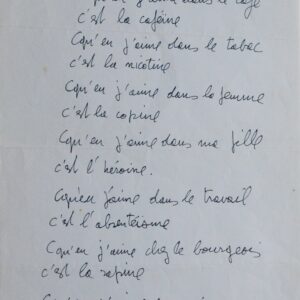 j'aime dans le café
c'est la caféine
Cqu'en j'aime dans le tabac
c'est la nicotine
Cqu'en j'aime dans la femme
c'est la copine
Cqu'en j'aime dans ma fille
c'est l'héroïne.
Cqu'en j'aime dans le travail
c'est l'absentéisme
Cqu'en j'aime chez le bourgeois
c'est la rapine